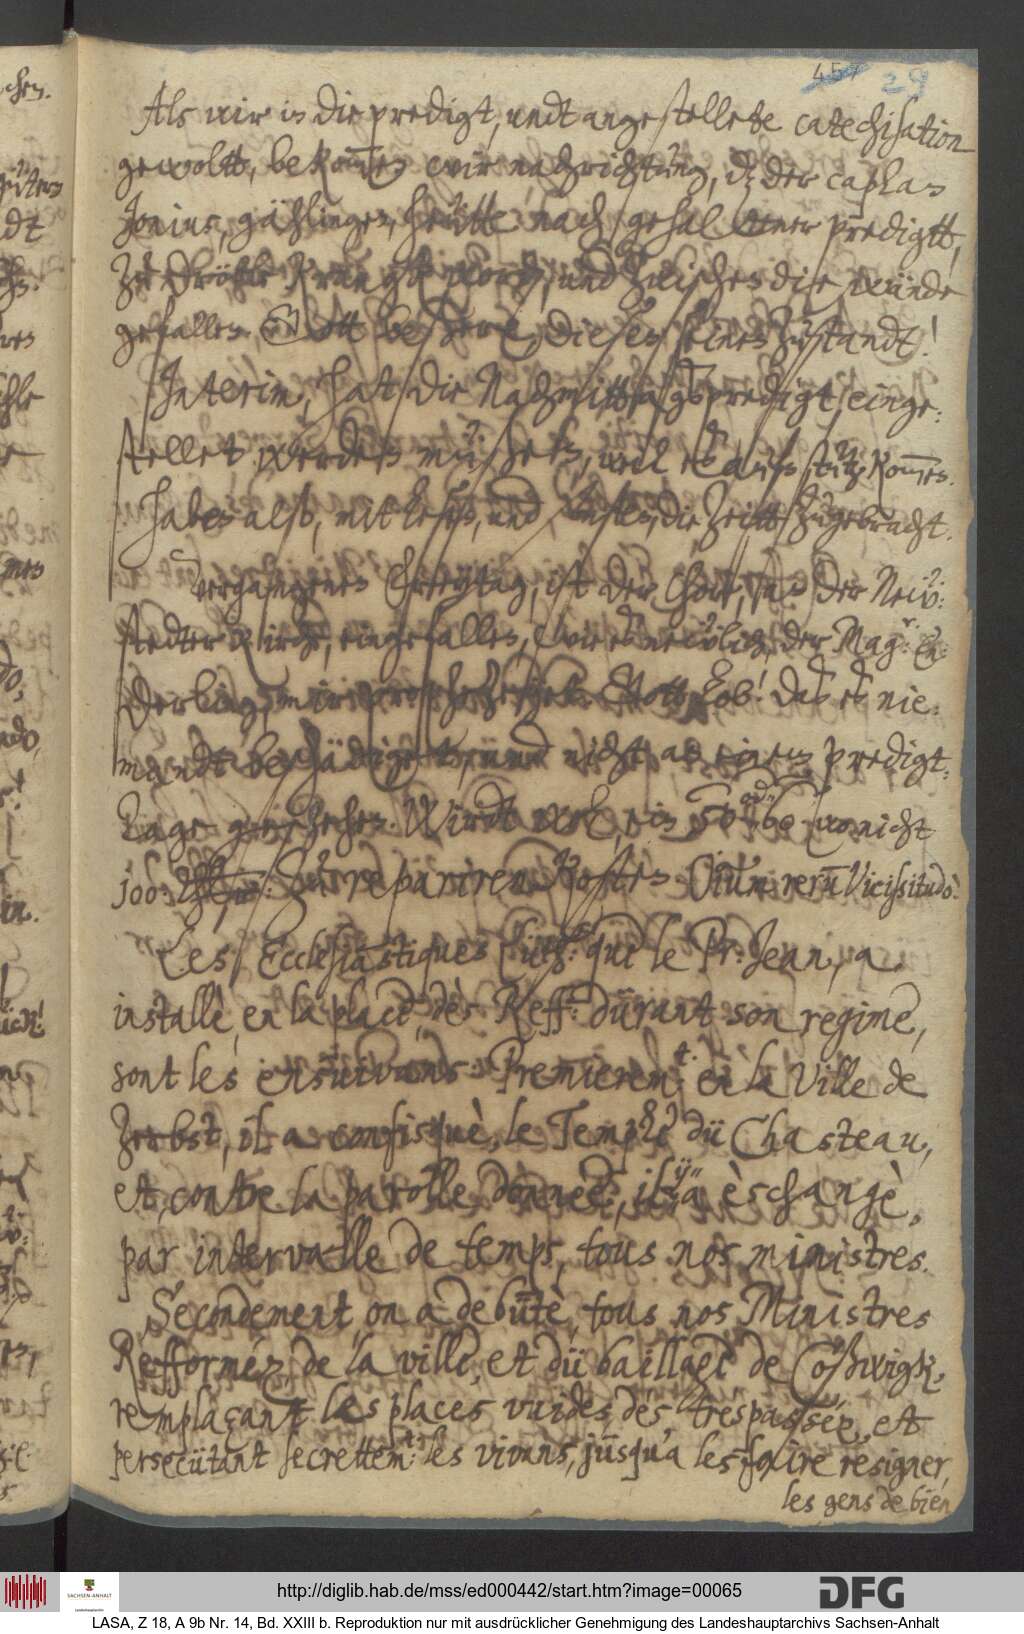 457 29
Als wir in die predigt, undt angestellete catechisation
gewoltt, bekom̄en wir nachrichtung, dz der caplan
Jonius, gählingen, heütte nach gehaltener predigtt,
zu Bröhle kranck word, und zwischen die wände
gefallen. Gott bessere, diesen seinen zustandt!
Interim, hat die Nachmittagspredigt, einge:
stellet werden müßen, weil es aufs kom̄en.
haben also, mit lesen, und die zeitt zugebracht.
Vergangenen Freytag, ist der Chor, in der Neü:
stedter kirche, eingefallen, wie es neülich, der Mag.r En:
derling, mir prophezeyet. Gott Lob! daß es nie:
mandt beschädiget, und nicht an einem predigt:
tage geschehen. Wirdt wol, ein 50 od' 60 wo nicht
100 zu repariren kosten. Oīum rerū Vicissitudo.
Les Ecclesiastiques Luth: que le Pr: Jean, a
installè, en la place, dès Reff: dürant son regime,
sont les ensuivans: Premierem.t en la Ville de
Zerbst, il a confisquè, le Temple dü Chasteau,
et contre la parolle donnèe, il y a èschangè,
par intervalle de temps, tous nos ministres.
Secondement on a debutè, tous nos Ministres
Refformèz, de la ville, et dü baillage de Coßwigk,
remplaçant les places vuides, des trespassèz, et
persecütant secrettem.t les vivans, jüsqu'a les faire resigner,
les gens de bien
http://diglib.hab.de/mss/ed000442/start.htm?image=00065
SACHSEN-ANHALT
DFG
LASA, Z 18, A 9b Nr. 14, Bd. XXIII b. Reproduktion nur mit ausdrücklicher Genehmigung des Landeshauptarchivs Sachsen-Anhalt